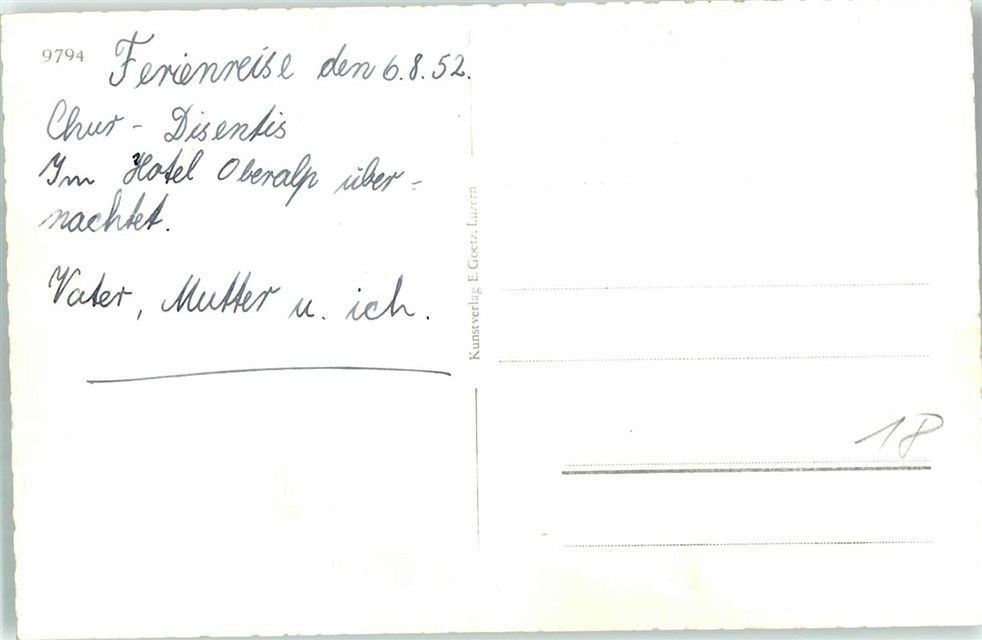 9794
Ferienreise den 6.8.52.
Chur - Disentis
Im Hotel Oberalp über-
nachtet.
Vater, Mutter u. ich.
Kunstverlag E. Goetz, Luzern
18